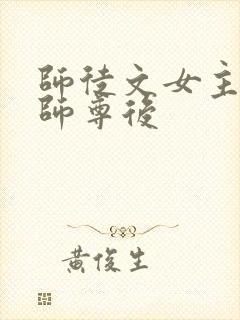 師徒文女主
師尊後
黃俊生